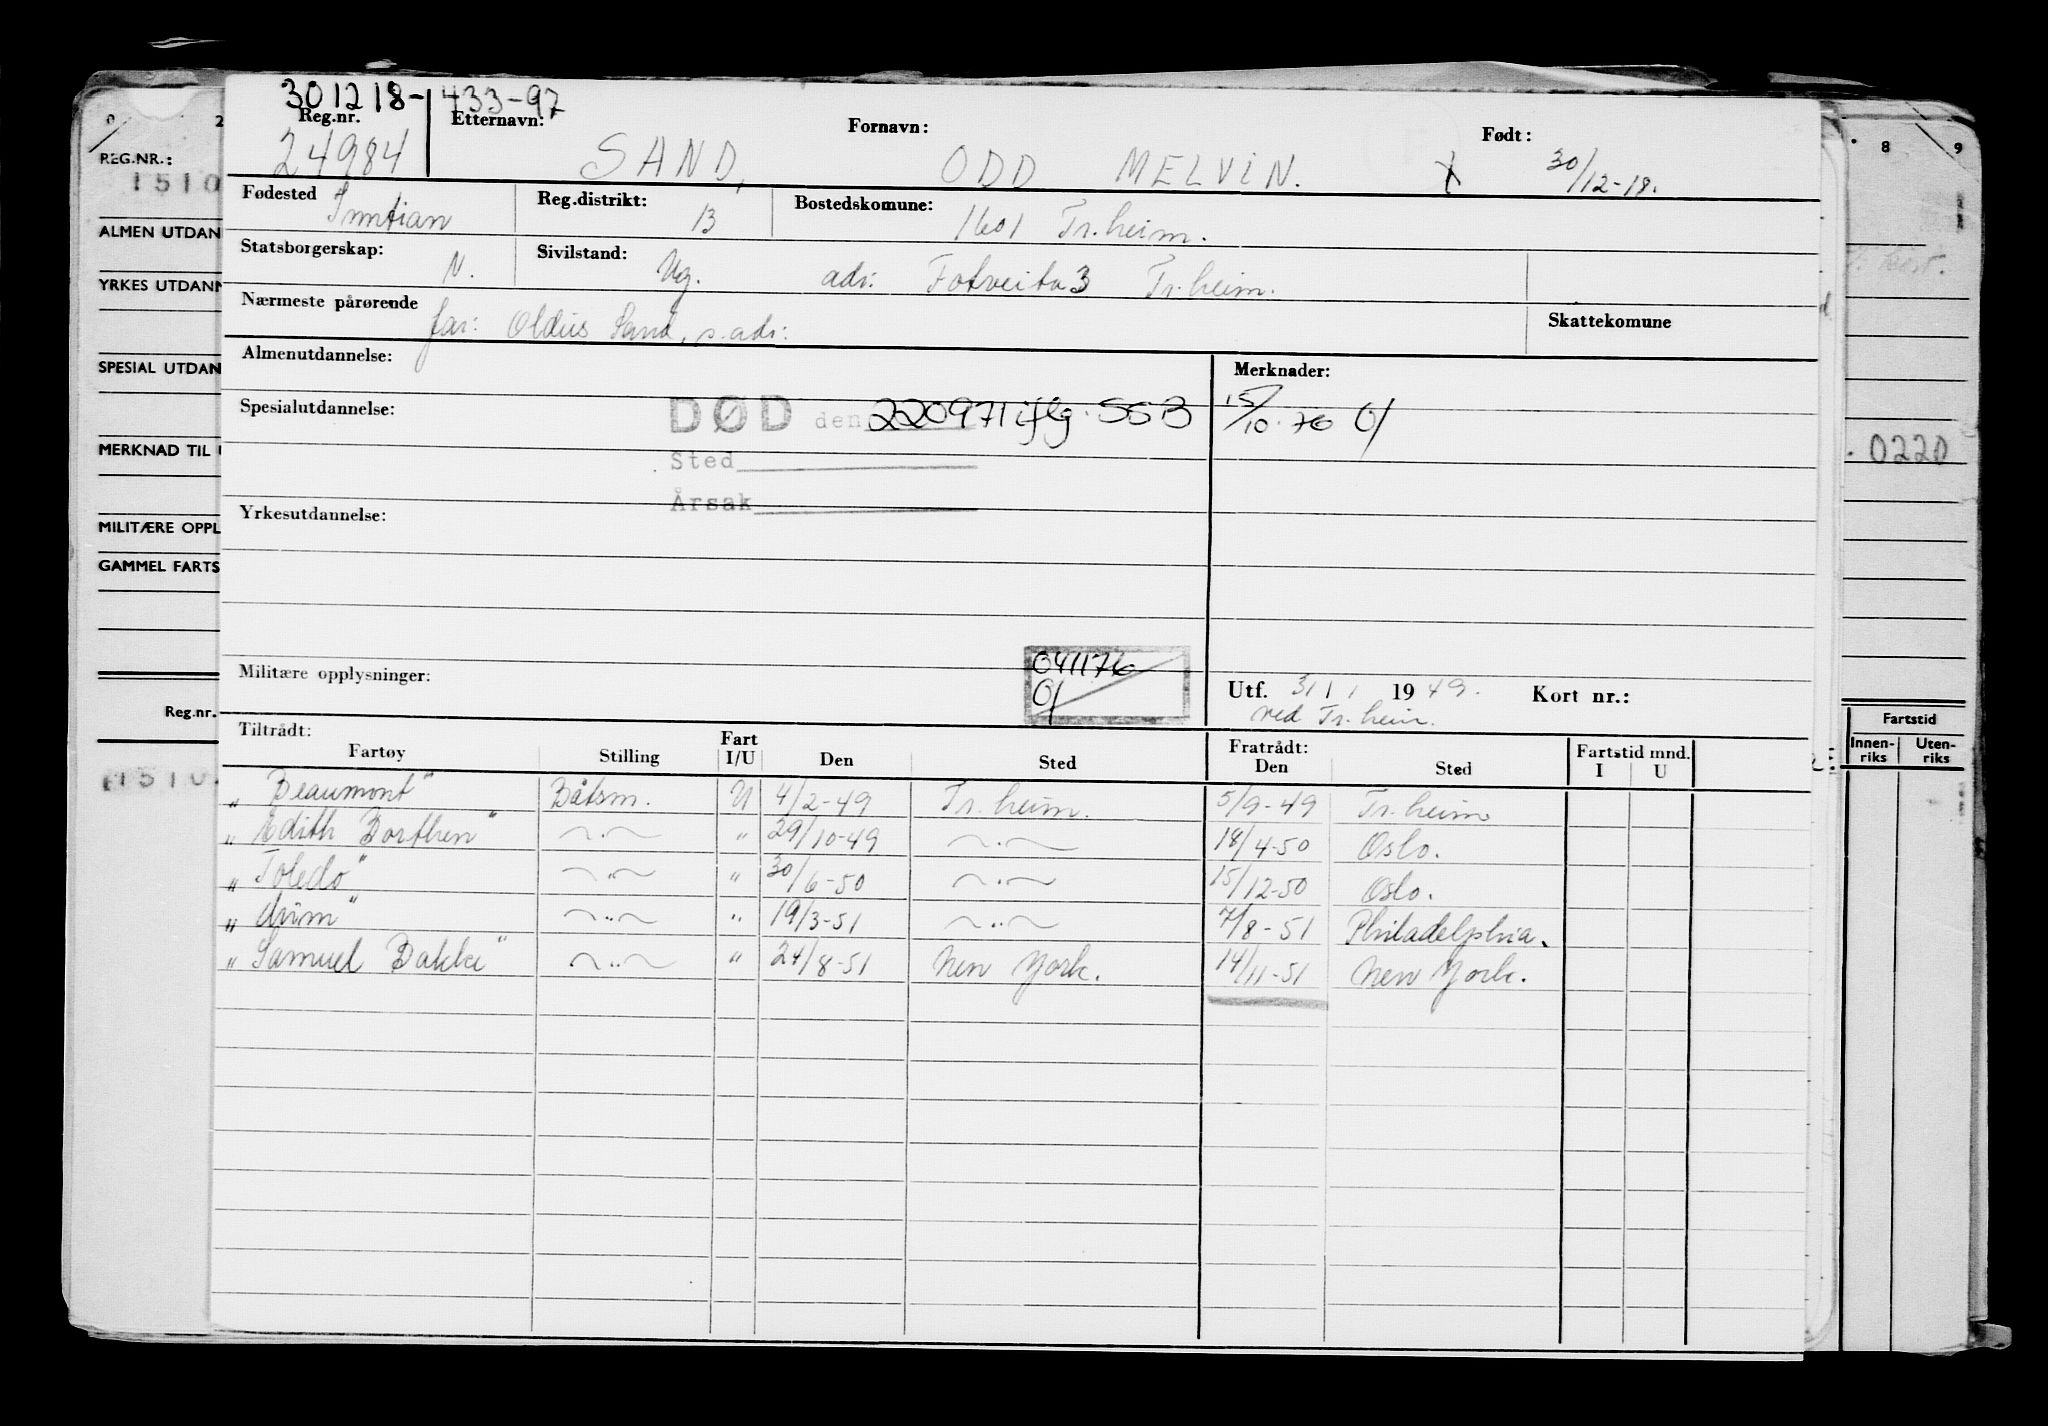 301218-433-97
Reg.nr. Etternavn: Fornavn: Født:
24984 SAND, ODD MELVIN. 30/12-18.
Fødested Inntian Reg.distrikt: 13 Bostedskomune: 1601 Tr.heim.
Statsborgerskap: N. Sivilstand: Ug. adr: Fotveita 3 Tr.heim.
Nærmeste pårørende far: Oldus Sand, s. adr: Skattekomune
Almenutdannelse: Merknader:
Spesialutdannelse: DØD den 220971 iflg. SSB 15/10.76
Sted
Årsak
Yrkesutdannelse:
041176
Militære opplysninger: Utf. 31/1 1949. Kort nr.:
ved Tr.heim.
Tiltrådt: Fratrådt:
Fartøy Stilling Fart I/U Den Sted Den Sted Fartstid mnd. I U
"Beaumont" Båtsm. U 4/2-49 Tr.heim. 5/9-49 Tr.heim
"Edith Borthen" ~.~ " 29/10-49 ~.~ 18/4-50 Oslo.
"Toledo" ~..~ " 30/6-50 ~..~ 15/12-50 Oslo.
19/3-51 ~..~ 7/8-51 Philadelphia.
"Samuel Bakke" ~..~ " 24/8-51 New York. 14/11-51 New York.
0 2
REG.NR.:
1510
ALMEN UTDAN
YRKES UTDAN
SPESIAL UTDAN
MERKNAD TIL
MILITÆRE OPPL
GAMMEL FARTS
Reg.nr.
1510.
8 9
0220
Fartstid
Innen-riks Uten-riks